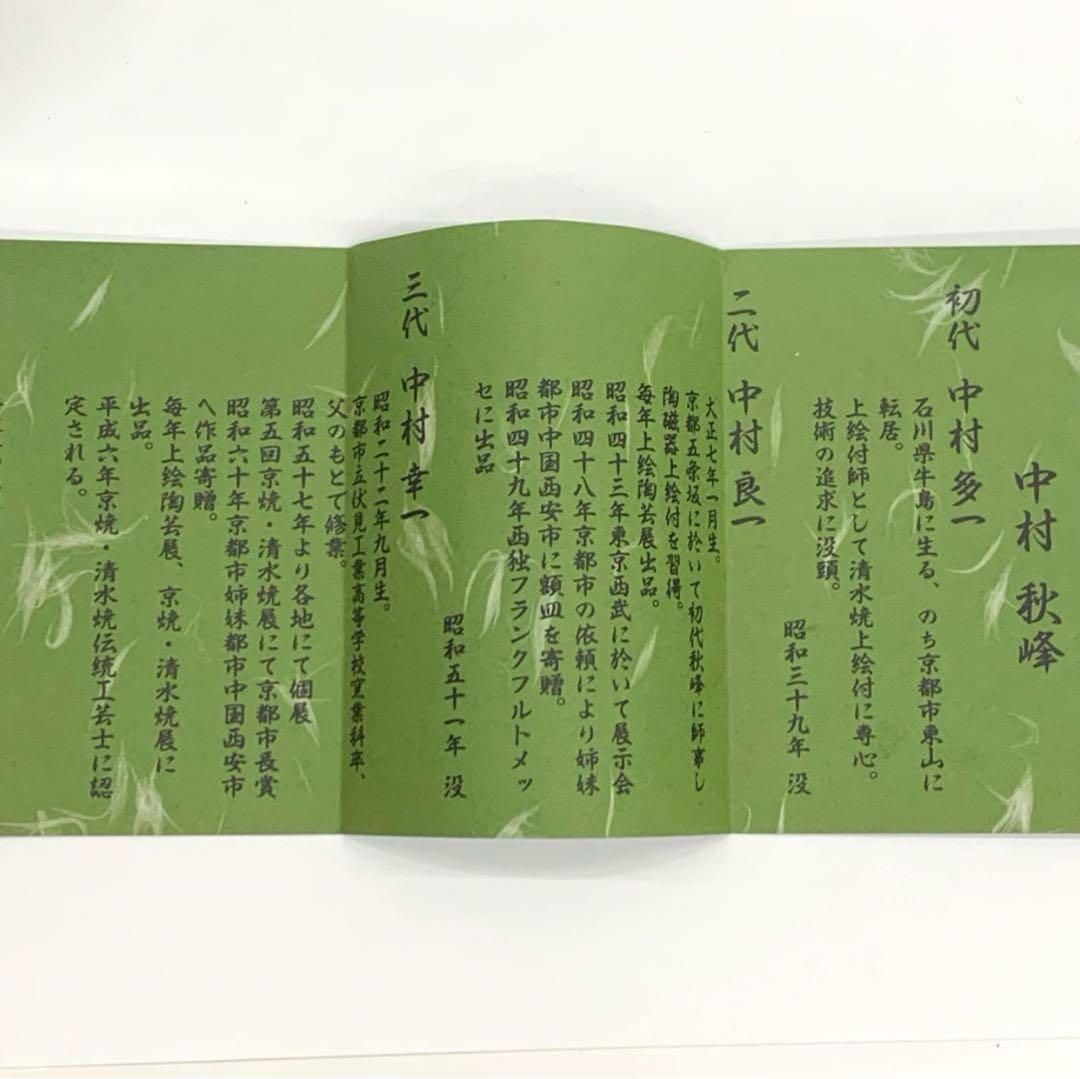 中村 秋峰
初代 中村 多一
石川県牛島に生る、のち京都市東山に
転居。
上絵付師として清水焼上絵付に専心。
技術の追求に没頭。
昭和三十九年 没
二代 中村 良一
大正七年一月生。
京都五条坂に於いて初代秋峰に師事し
陶磁器上絵付を習得。
毎年上絵陶芸展出品。
昭和四十三年東京西武に於いて展示会
昭和四十八年京都市の依頼により姉妹
都市中国西安市に額皿を寄贈。
昭和四十九年西独フランクフルトメッ
セに出品
昭和五十一年 没
三代 中村 幸一
昭和二十二年九月生。
京都市立伏見工業高等学校窯業科卒、
父のもとで修業。
昭和五十七年より各地にて個展
第五回京焼・清水焼展にて京都市長賞
昭和六十年京都市姉妹都市中国西安市
へ作品寄贈。
毎年上絵陶芸展、京焼・清水焼展に
出品。
平成六年京焼・清水焼伝統工芸士に認
定される。